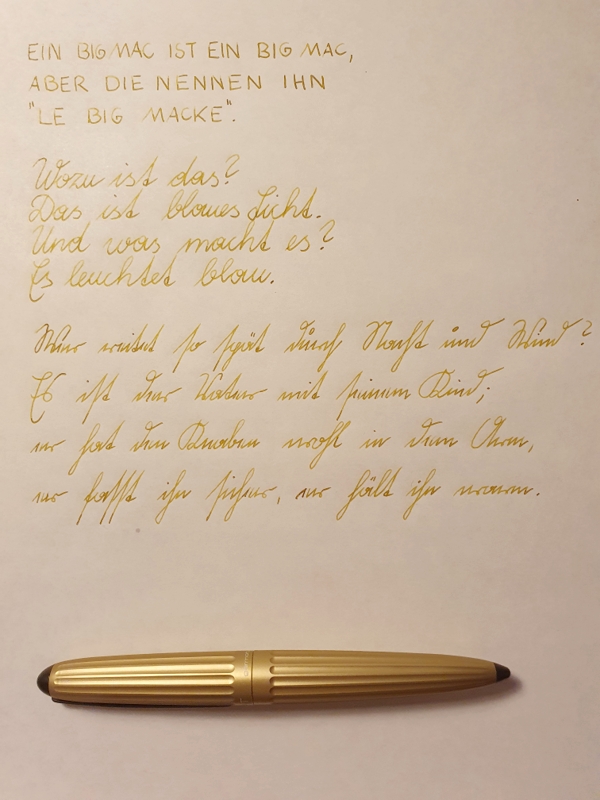 EIN BIG MAC IST EIN BIG MAC,
ABER DIE NENNEN IHN
"LE BIG MACKE".
Wozu ist das?
Das ist blaues Licht.
Und was macht es?
Es leuchtet blau.
Wer reitet so spät durch Nacht und Wind?
Es ist der Vater mit seinem Kind;
er hat den Knaben wohl in dem Arm,
er fasst ihn sicher, er hält ihn warm.